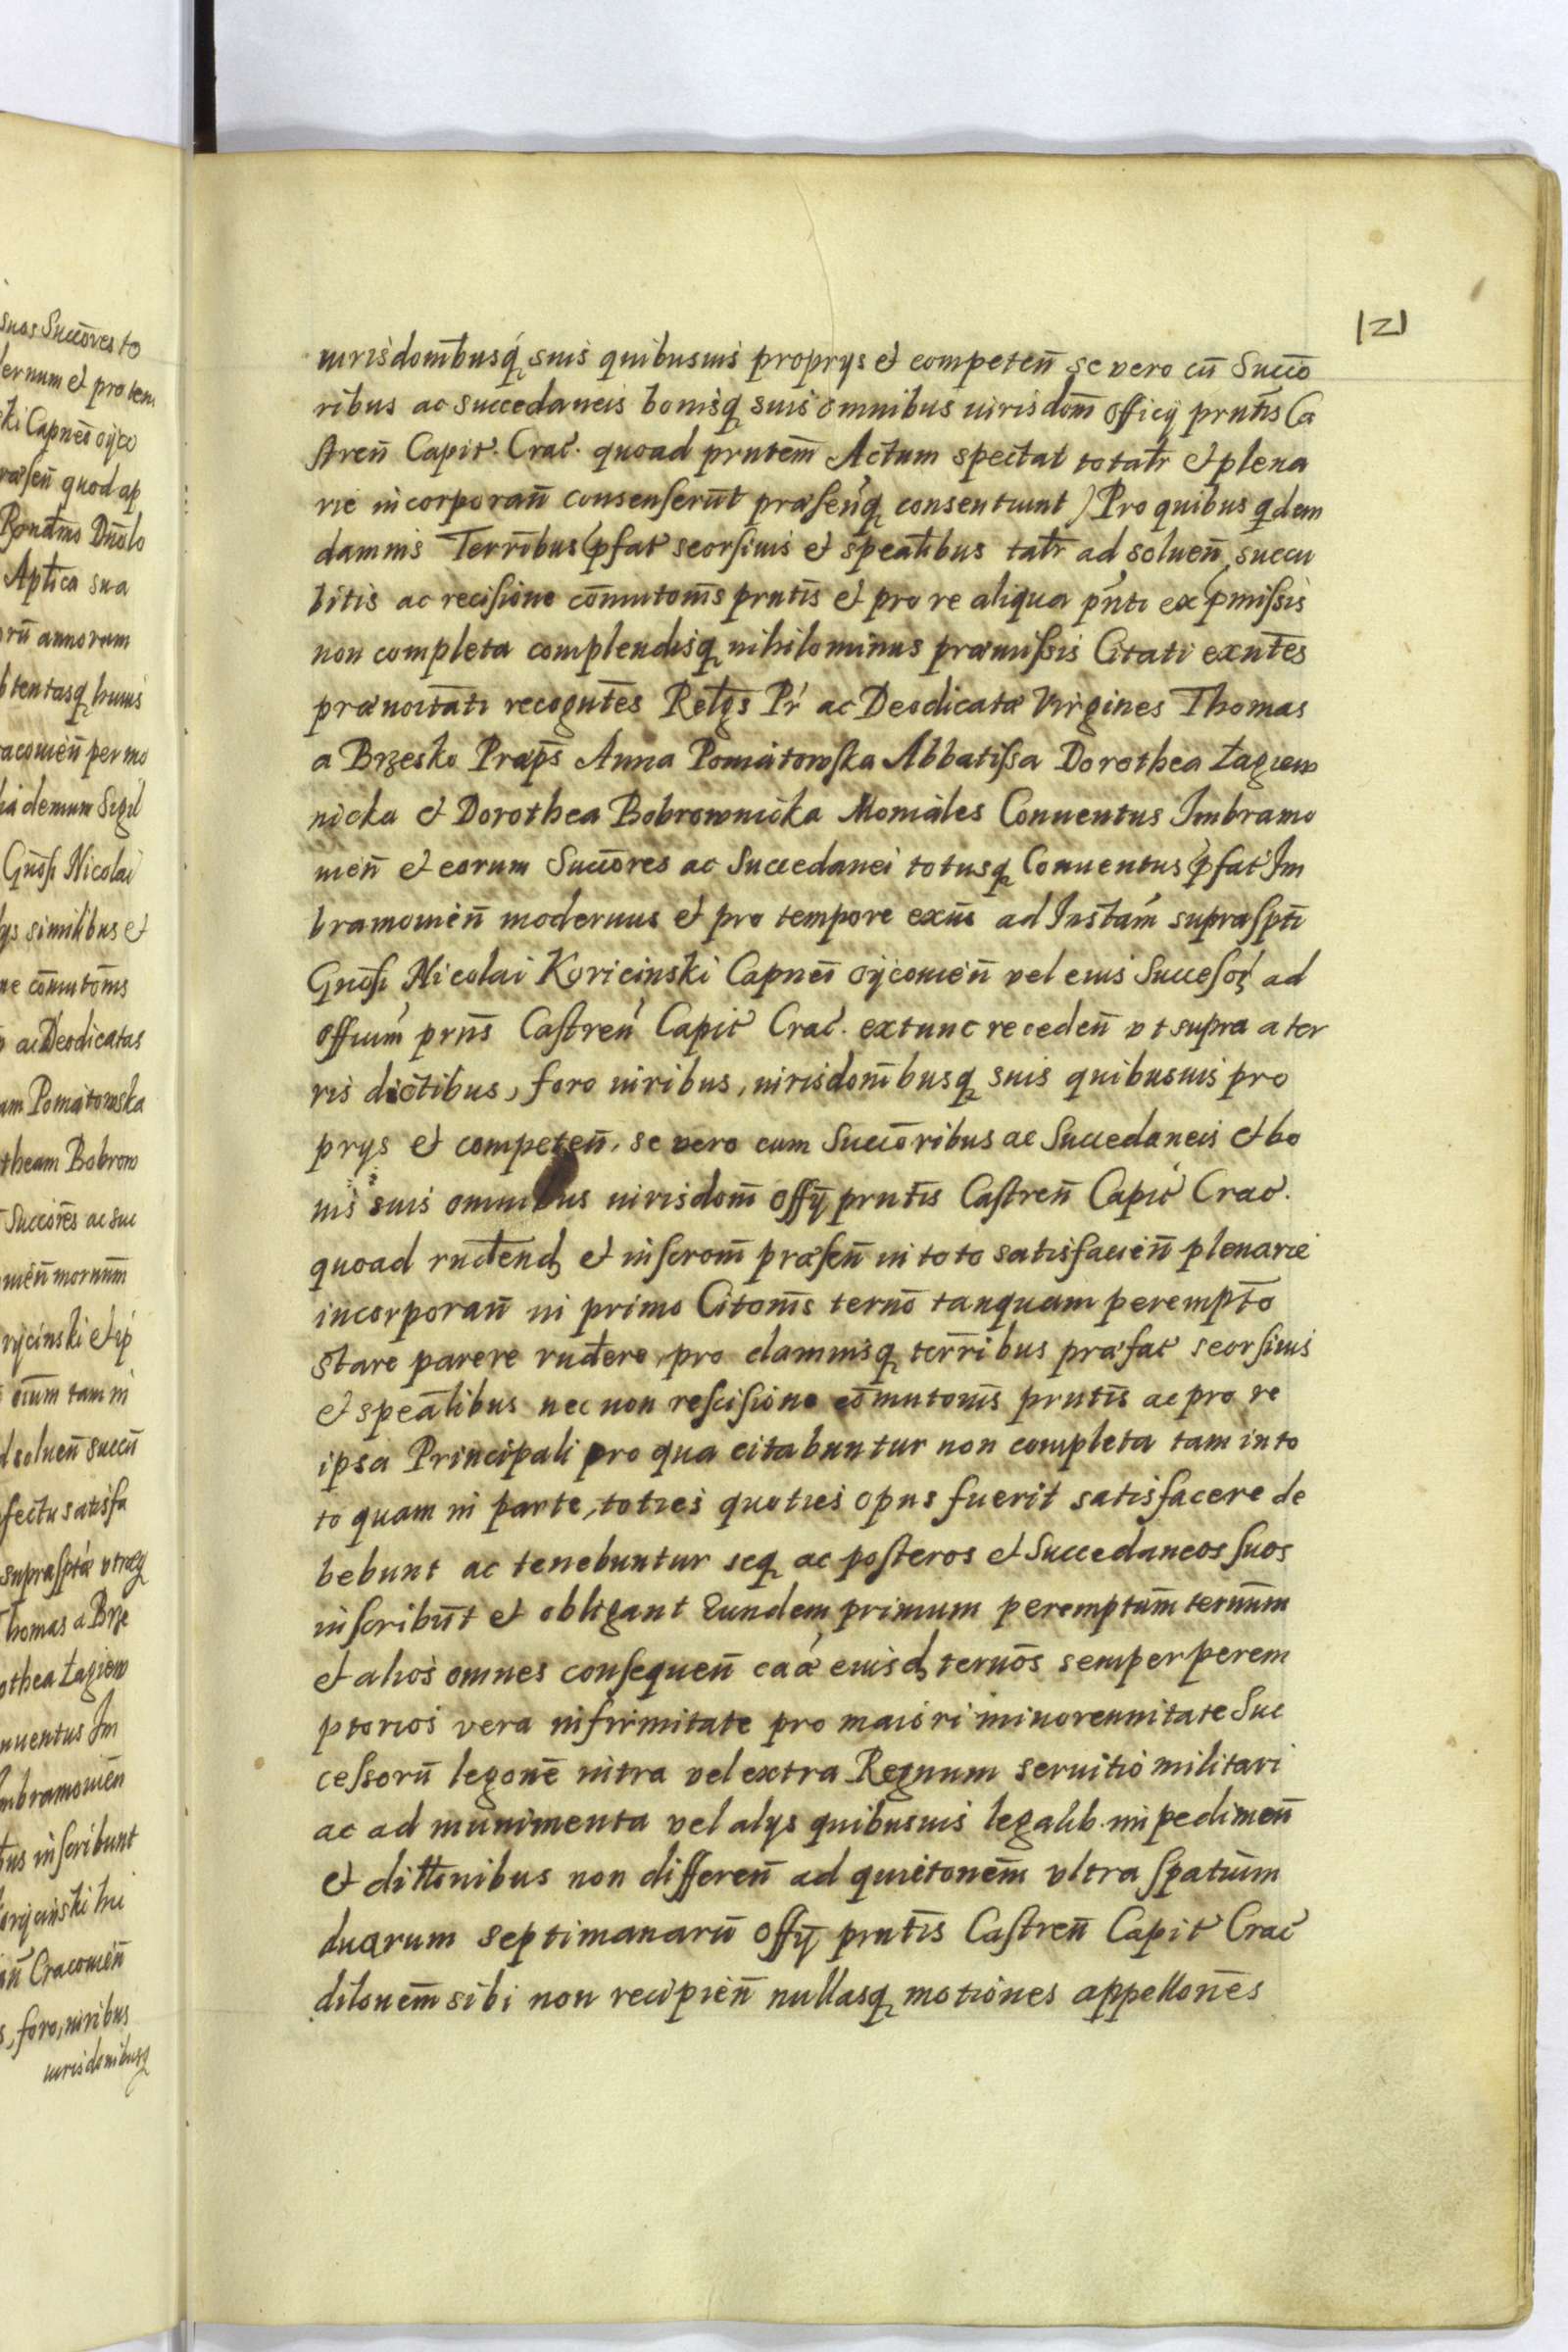 suas Succōres to
ternum et pro tem
ski Capnēi oÿco
præsen̄ quod ap
Dn̄olo
Aptica sua
orū annorum
btentasq huius
racouien̄ per mo
demum Sigil
Gnōsi Nicolai
ijs similibus et
ne cōmutōnis
ac Deodicatas
am Poniatowska
theam Bobrow
Succōres ac suc
uien̄ mornum̄
rycinski et ip
oium tam in
d soluen̄ succū
fectu satisfa
supraſptæ vtræq
Thomas a Brze
othea Łagiew
nuentus Im
mbramouien̄
tus inſcribunt
Korycinski in
Cracouien̄
s, foro, iuribus
iurisdonibusq
121
iurisdonībusq suis quibusuis proprÿs et competen̄ se vero cū Succo
ribus ac succedaneis bonisq suis omnibus iurisdom̄ officÿ prntis Ca
ſtren̄ Capit. Crac. quoad prntem̄ Actum spectat totalr et plena
rie incorporan̄ consenſerūt præſenq consentiunt) Pro quibus qdem
damnis Terribus pfat seorſiuis et spealibus talr ad soluen̄ succu
bitis ac reciſione com̄utonīs prntis et pro re aliqua pnti ex pmiſsis
non completa complendisq nihilominus præmiſsis Citati exntes
prænoītati recogntes Relgs Pr ac Deodicatæ Virgines Thomas
a Brzesko Præps Anna Poniatowſka Abbatiſsa Dorothea Łagiew
nicka et Dorothea Bobrownicka Moniales Conuentus Imbramo
uien̄ et eorum Succōres ac Succedanei totusq Conuentus pfat Im
bramouien̄ modernus et pro tempore exn̄s ad Instam supraſpti
Gnōſi Nicolai Koricinski Capnēi Oÿcouien̄ vel eius Succeſor ad
offium prn̄s Caſtren Capit Crac. extunc receden̄ vt supra a ter
ris dictibus, foro iuribus, iurisdonībusq suis quibusuis pro
prÿs et competen̄. se vero cum Succōribus ac Succedaneis et bo
nis suis omnibus iurisdom̄ offÿ prntis Caſtren̄ Capit Crac.
quoad rndend et inſcrom̄ præſen̄ in toto satisfacien̄ plenarie
incorporan̄ in primo Citonīs ternō tanquam perempto
stare parere rndere, pro damnisq terribus præfat seorſiuis
et speālibus nec non reſciſione com̄utonīs prntis ac pro re
ipsa Principali pro qua citabuntur non completa tam in to
to quam in parte, toties quoties opus fuerit satisfacere de
bebunt ac tenebuntur seq ac poſteros et Succedaneos ſuos
inſcribūt et obligant Eundem primum peremptum̄ ternum̄
et alios omnes conſequen̄ caæ eiusd ternōs semper perem
ptorios vera infirmitate pro maiori minorennitate Suc
ceſsorū legone intra vel extra Regnum seruitio militari
ac ad munimenta vel alÿs quibusuis legalib. impedimen̄
et dillonibus non differen̄ ad quietonem̄ vltra ſpatium
duarum septimanarū offÿ prntis Caſtren̄ Capit Crac
dilonem̄ sibi non recipien̄ nullasq motiones appellones